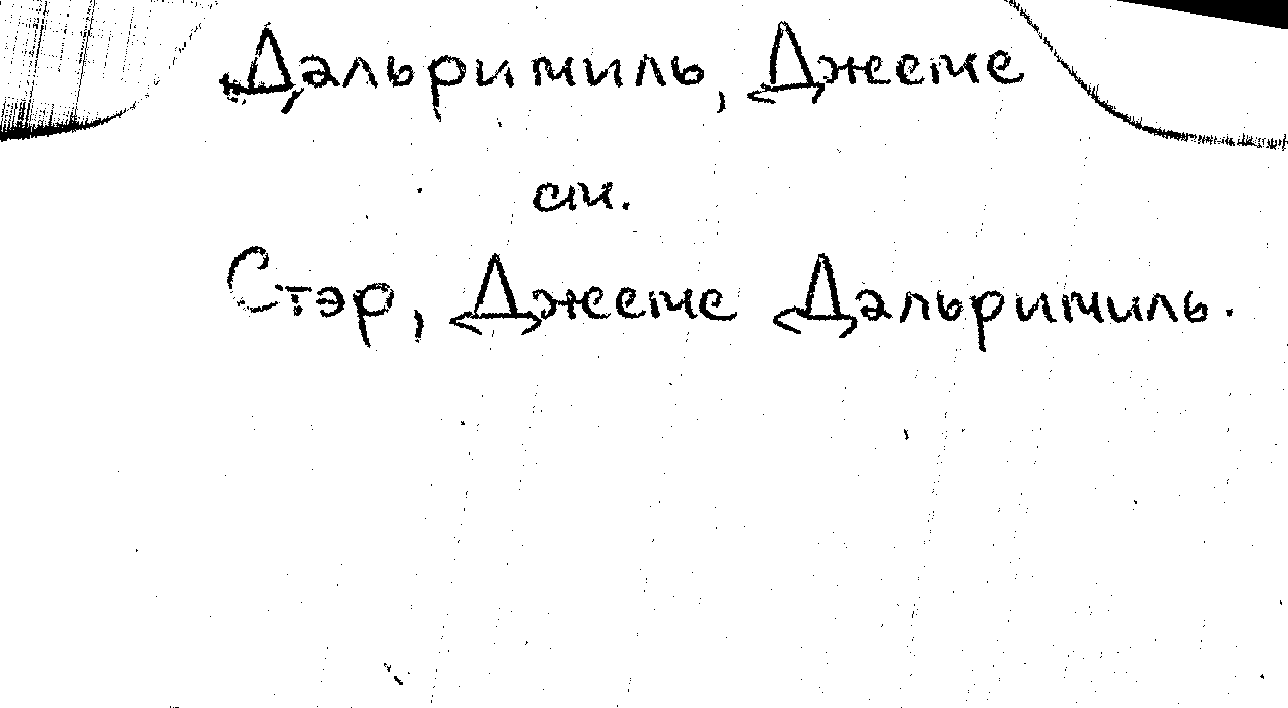 Дальримпль, Джемс
см.
Стэр, Джемс Дальримпль.